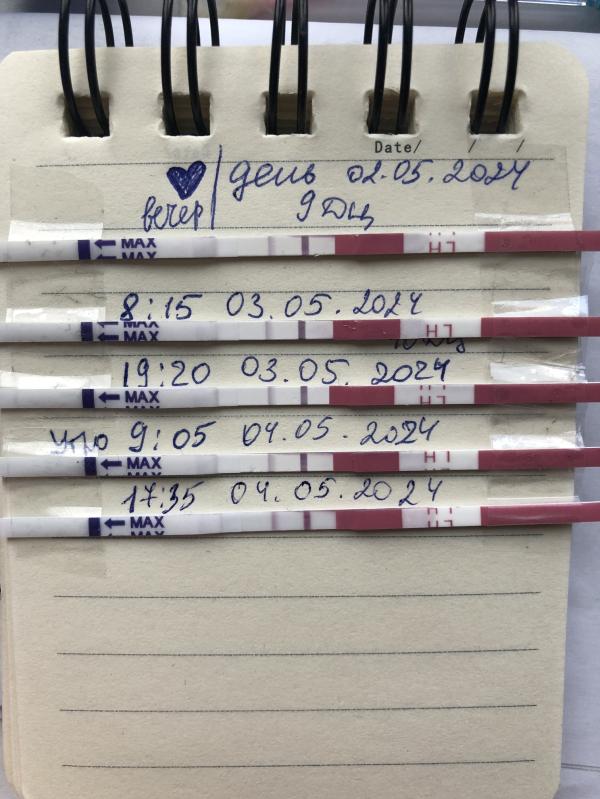 Date/ / /
день 02.05.2024
вечер 9 ДЦ
MAX LH
8:15 03.05.2024
MAX LH
ДЦ
19:20 03.05.2024
MAX LH
утро 9:05 04.05.2024
MAX LH
17:35 04.05.2024
MAX LH